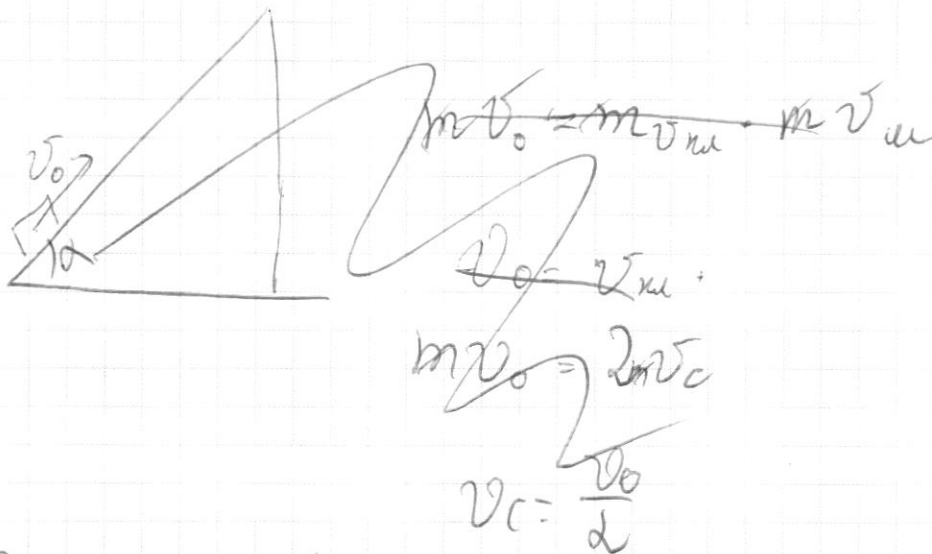 v₀
α
mv₀ = mv_кл · mv_ш
v₀ = v_кл ·
mv₀ = 2mv_c
v_c = v₀/2